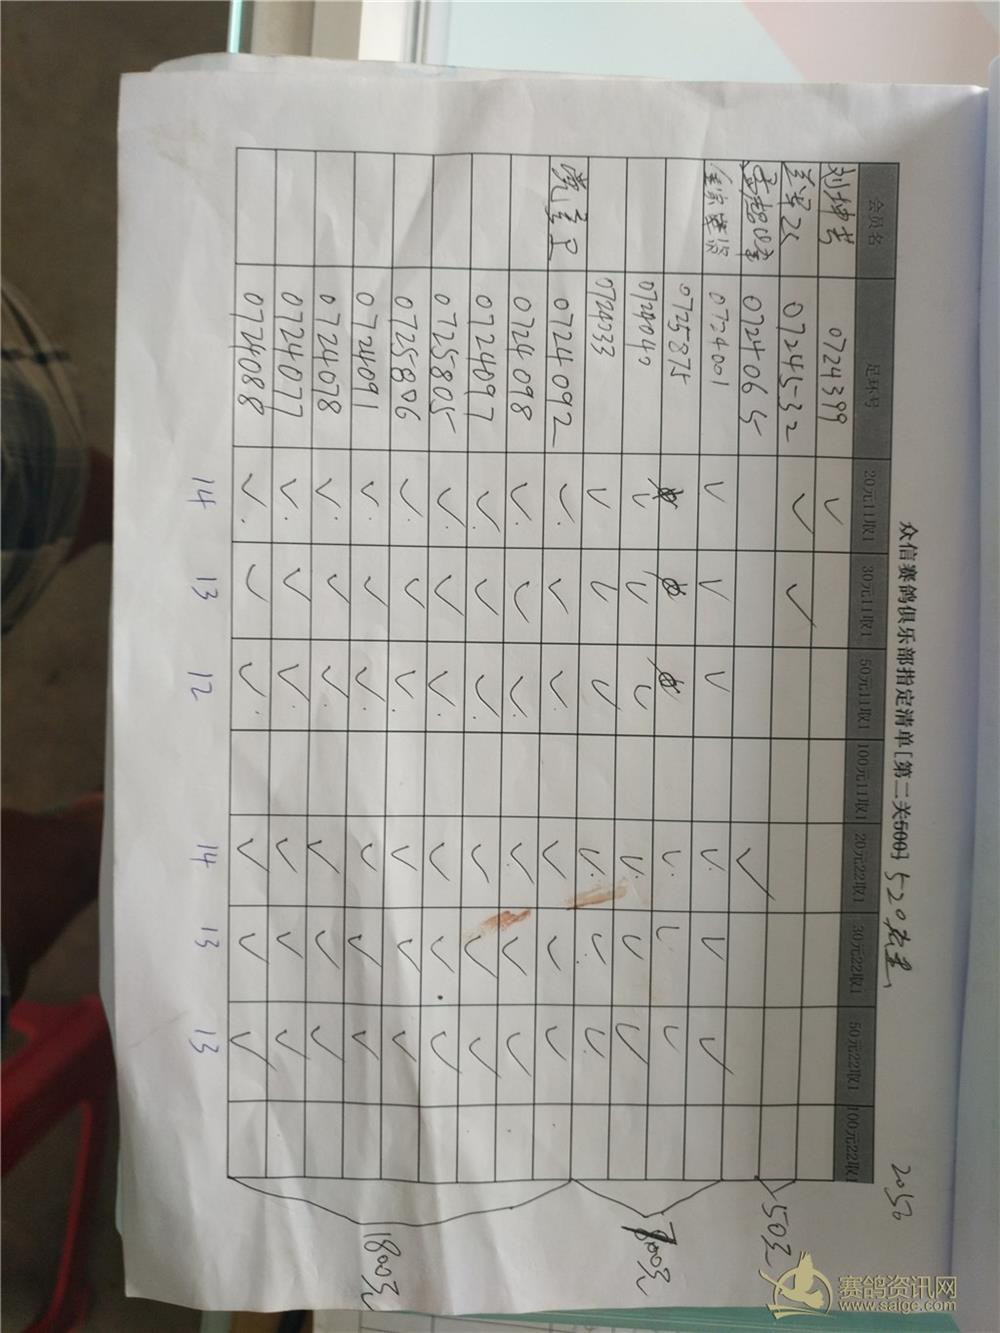 众信赛鸽俱乐部指定清单[第二关500] 520
2050
会员名 足环号 20元11取1 30元11取1 50元11取1 100元11取1 20元22取1 30元22取1 50元22取1 100元22取1
刘坤 0724399 ✓
0724532 ✓ ✓
0724065 ✓
50元
0724001 ✓ ✓ ✓ ✓ ✓ ✓
0725875 ✓ ✓ ✓
0724040 ✓ ✓ ✓ ✓ ✓ ✓
0724233 ✓ ✓ ✓ ✓ ✓ ✓
00元
0724092 ✓ ✓ ✓ ✓ ✓ ✓
0724098 ✓ ✓ ✓ ✓ ✓ ✓
0724097 ✓ ✓ ✓ ✓ ✓ ✓
0725805 ✓ ✓ ✓ ✓ ✓ ✓
0725806 ✓ ✓ ✓ ✓ ✓ ✓
0724091 ✓ ✓ ✓ ✓ ✓ ✓
0724078 ✓ ✓ ✓ ✓ ✓ ✓
0724077 ✓ ✓ ✓ ✓ ✓ ✓
0724088 ✓ ✓ ✓ ✓ ✓ ✓
1800元
14 13 12 14 13 13
赛鸽资讯网
www.saige.com